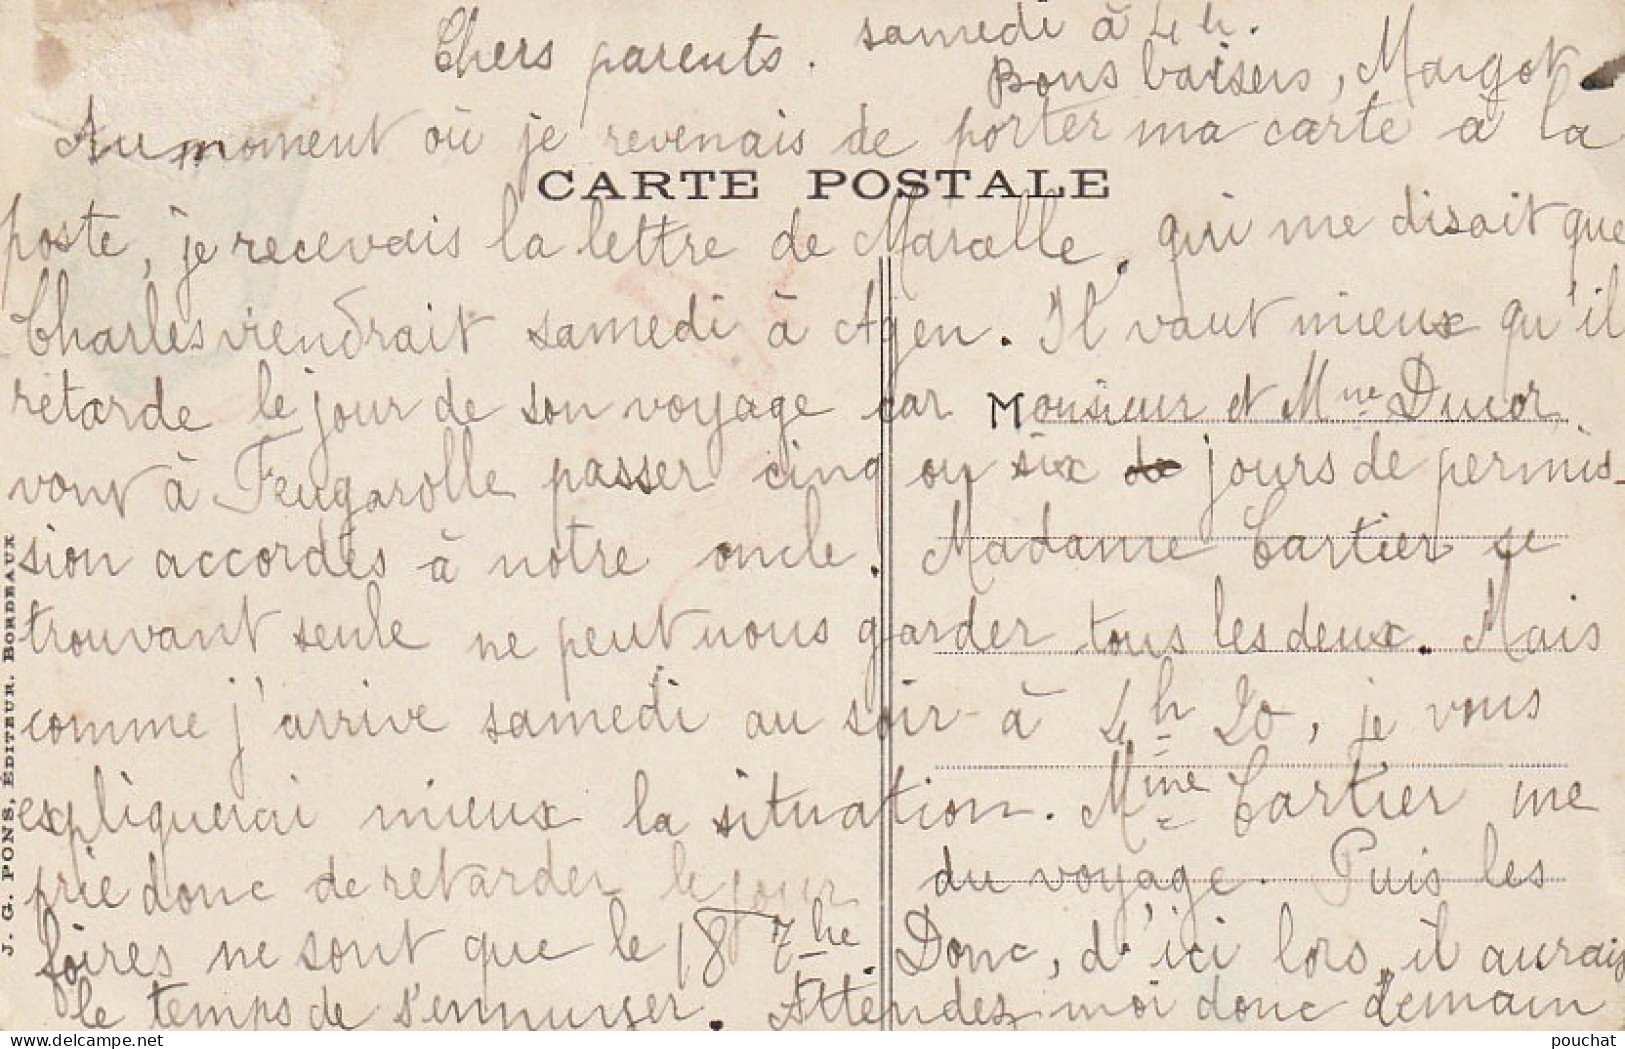 Chers parents. samedi à 4 h.
Bons baisers, Margot
Au moment où je revenais de porter ma carte à la
CARTE POSTALE
poste, je recevais la lettre de Marcelle, qui me disait que
Charles viendrait samedi à Agen. Il vaut mieux qu'il
retarde le jour de son voyage car Monsieur et Mme Ducor
vont à Feugarolle passer cinq ou six jours de permis-
sion accordés à notre oncle. Madame Cartier se
trouvant seule ne peut nous garder tous les deux. Mais
comme j'arrive samedi au soir à 4h 20, je vous
expliquerai mieux la situation. Mme Cartier me
prie donc de retarder le jour du voyage. Puis les
foires ne sont que le 18 7bre Donc, d'ici lors, il aurait
le temps de s'ennuyer. Attendez moi donc demain
J. G. PONS, ÉDITEUR. BORDEAUX
delcampe.net
pouchat